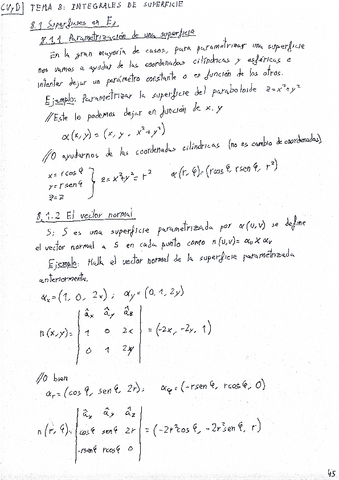 CV,D] TEMA 8: INTEGRALES DE SUPERFICIE
8.1 Superficies en E₃
8.1.1 Parametrización de una superficie
En la gran mayoría de casos, para parametrizar una superficie
nos vamos a ayudar de las coordenadas cilíndricas y esféricas e
intentar dejar un parámetro constante o en función de los otros.
Ejemplo: Parametrizar la superficie del paraboloide z=x²+y²
//Este lo podemos dejar en función de x, y
α(x,y) = (x, y, x²+y²)
//O ayudarnos de las coordenadas cilíndricas (no es cambio de coordenadas)
x = r cosφ
y = r senφ
z = z
} z = x²+y² = r²
α(r,φ) = (r cosφ, r senφ, r²)
8.1.2 El vector normal
S: S es una superficie parametrizada por α(u,v) se define
el vector normal a S en cada punto como n(u,v) = αu × αv
Ejemplo: Halla el vector normal de la superficie parametrizada
anteriormente.
αx = (1, 0, 2x) ; αy = (0, 1, 2y)
n(x,y) = | âx ây âz |
| 1 0 2x | = (-2x, -2y, 1)
| 0 1 2y |
//O bien
αr = (cosφ, senφ, 2r); αφ = (-r senφ, r cosφ, 0)
n(r,φ) = | âx ây âz |
| cosφ senφ 2r | = (-2r² cosφ, -2r² senφ, r)
| -r senφ r cosφ 0 |
45